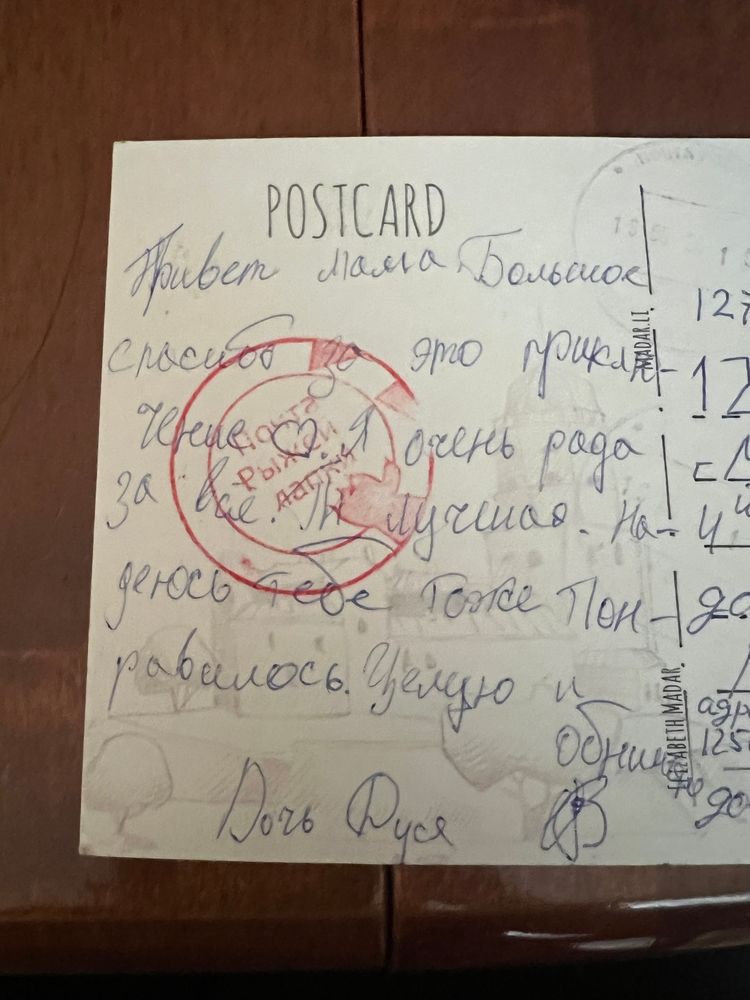 POSTCARD
Привет мама Большое
спасибо за это приклю-
чение ♡. Я очень рада
за все. Ты лучшая. На-
деюсь тебе тоже пон-
равилось. Целую и
Обнимаю
Дочь Дуся
Почта
Рыжей
лапки
MADAR.LI.
ELIZABETH MADAR.
127
12
адр
125
до